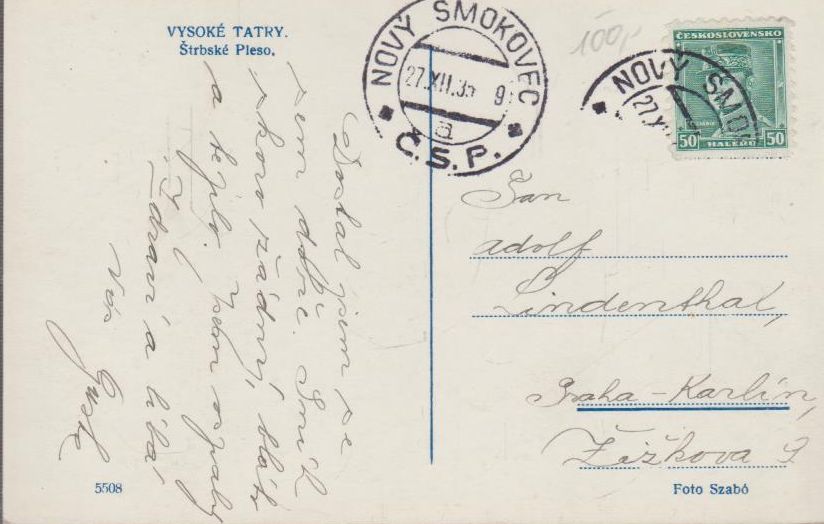 VYSOKÉ TATRY.
Štrbské Pleso.
NOVÝ SMOKOVEC
27.XII.35 9
a
Č.S.P.
100,-
ČESKOSLOVENSKO
50 HALÉŘŮ 50
NOVÝ SMOK
27.X
Dostal jsem se
sem dobře. Sníh
skoro žádný, bláto
a teplo. Jsem
Zdraví a líbá
Vás
Pan
Adolf
Lindenthal,
Praha-Karlín,
Žižkova 9
5508
Foto Szabó